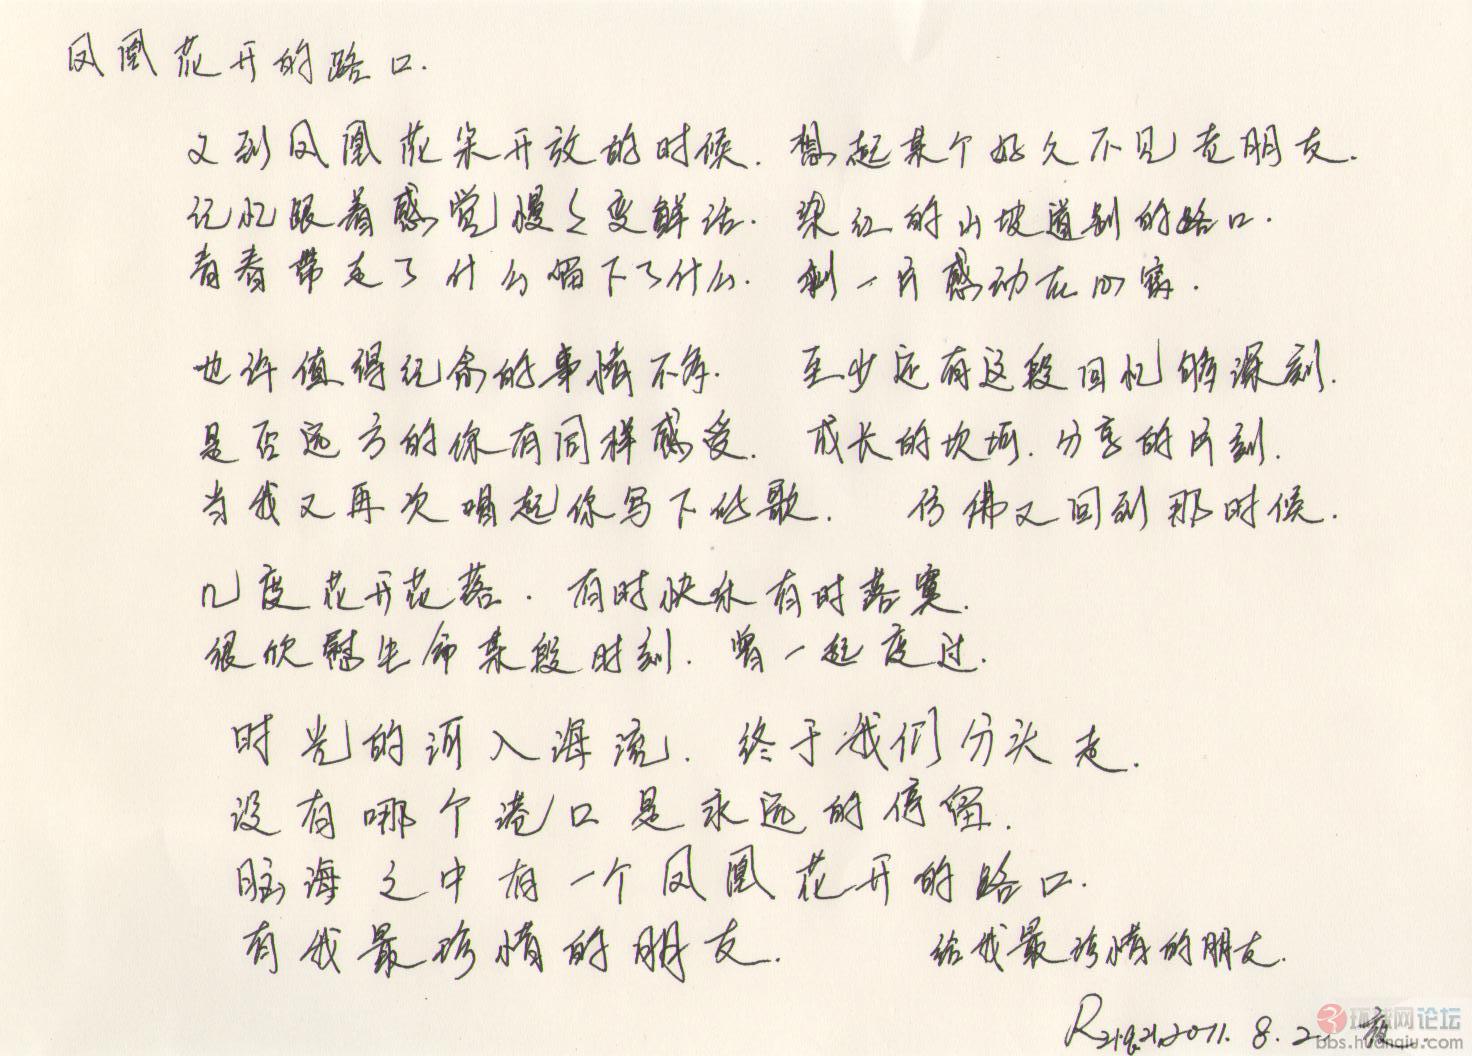 凤凰花开的路口.
又到凤凰花朵开放的时候. 想起某个好久不见老朋友.
记忆跟着感觉慢慢变鲜活. 染红的山坡道别的路口.
青春带走了什么留下了什么. 剩一片感动在心窝.
也许值得纪念的事情不多. 至少还有这段回忆够深刻.
是否远方的你有同样感受. 成长的坎坷.分享的片刻.
当我又再次唱起你写下的歌. 仿佛又回到那时候.
几度花开花落. 有时快乐有时落寞.
很欣慰生命某段时刻. 曾一起度过.
时光的河入海流. 终于我们分头走.
没有哪个港口是永远的停留.
脑海之中有一个凤凰花开的路口.
有我最珍惜的朋友. 给我最珍惜的朋友.
2011. 8. 2 夜
环球网论坛
bbs.huanqiu.com